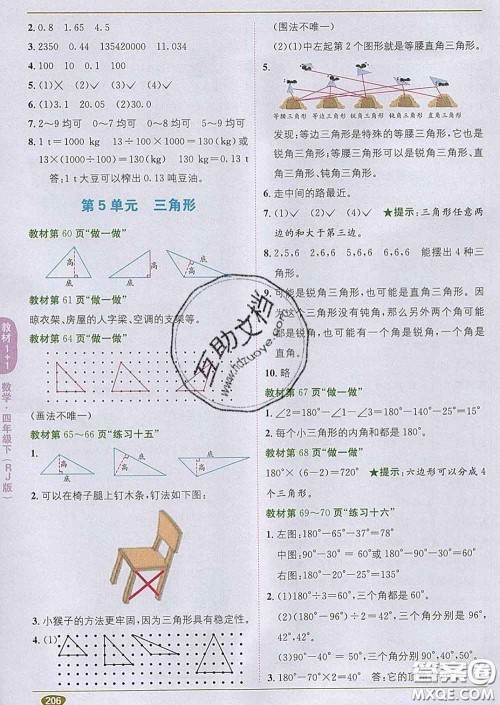 2. 0.8 1.65 4.5
3. 2350 0.44 135420000 11.034
4. 100 10 0.1 100
5. (1)× (2)✓ (3)✓ (4)✓
6. (1)3.1 20.05 (2)0.30 30.0
7. 2~9 均可 0~4 均可 5~9 均可
8. 1 t=1000 kg 13÷100×1000=130(kg)或 1 t=1000 kg 1000÷100×13=130(kg)
130 kg=0.13 t
答:1 t大豆可以榨出0.13 吨豆油。
第5单元 三角形
教材第 60 页“做一做”
高 底
高 底
高 底
教材第 61 页“做一做”
晾衣架、房屋的人字梁、空调的支架等。
教材第 64 页“做一做”
(画法不唯一)
教材第 65~66 页“练习十五”
1. 高 底 高 底
2. 可以在椅子腿上钉木条,钉法如下:
3. 小猴子的方法更牢固,因为三角形具有稳定性。
4. (1)
(围法不唯一)
(2)(1)中左起第 2 个图形就是等腰直角三角形。
5.
等腰三角形 等边三角形 锐角三角形 钝角三角形 直角三角形
发现:等边三角形是特殊的等腰三角形,它也是锐角三角形;等腰三角形可能是锐角三角形、直角三角形、钝角三角形。
6. 走中间的路最近。
7. (1)✓ (2)✓ (4)✓ ★提示:三角形任意两边的和大于第三边。
8. 2,5,6 2,6,6 5,6,6 6,6,6 能摆出 4 种三角形。
9. 可能是锐角三角形,也可能是直角三角形。因为三角形按角分
角;也可能有一个角是直角,一个角是锐角
10. 略
教材第 67 页“做一做”
1. ∠2=180°
2. 每个小三角形的内角和都是 180°。
教材第 68 页“做一做”
180°×(6-2)=720° ★提示:六边形可以分成 4 个三角形。
教材第 69~70 页“练习十六”
1. 左图:180°-65°-37°=78°
中图:90°-30°=60°或 180°-90°-30°=60°
右图:180°-20°-25°=135°
2. (1)180°÷3=60°
(2)(180°-96°)÷2=42°,三个角分别是 96°,42°,42°。
(3)90°-40°=50°,三个角分别是 90°,40°,50°。
3. 180°-70°
教材 1+1 数学·四年级下(RJ版)
206
互助文档
www.hdzuoye.com
答案圈
MXQE.COM